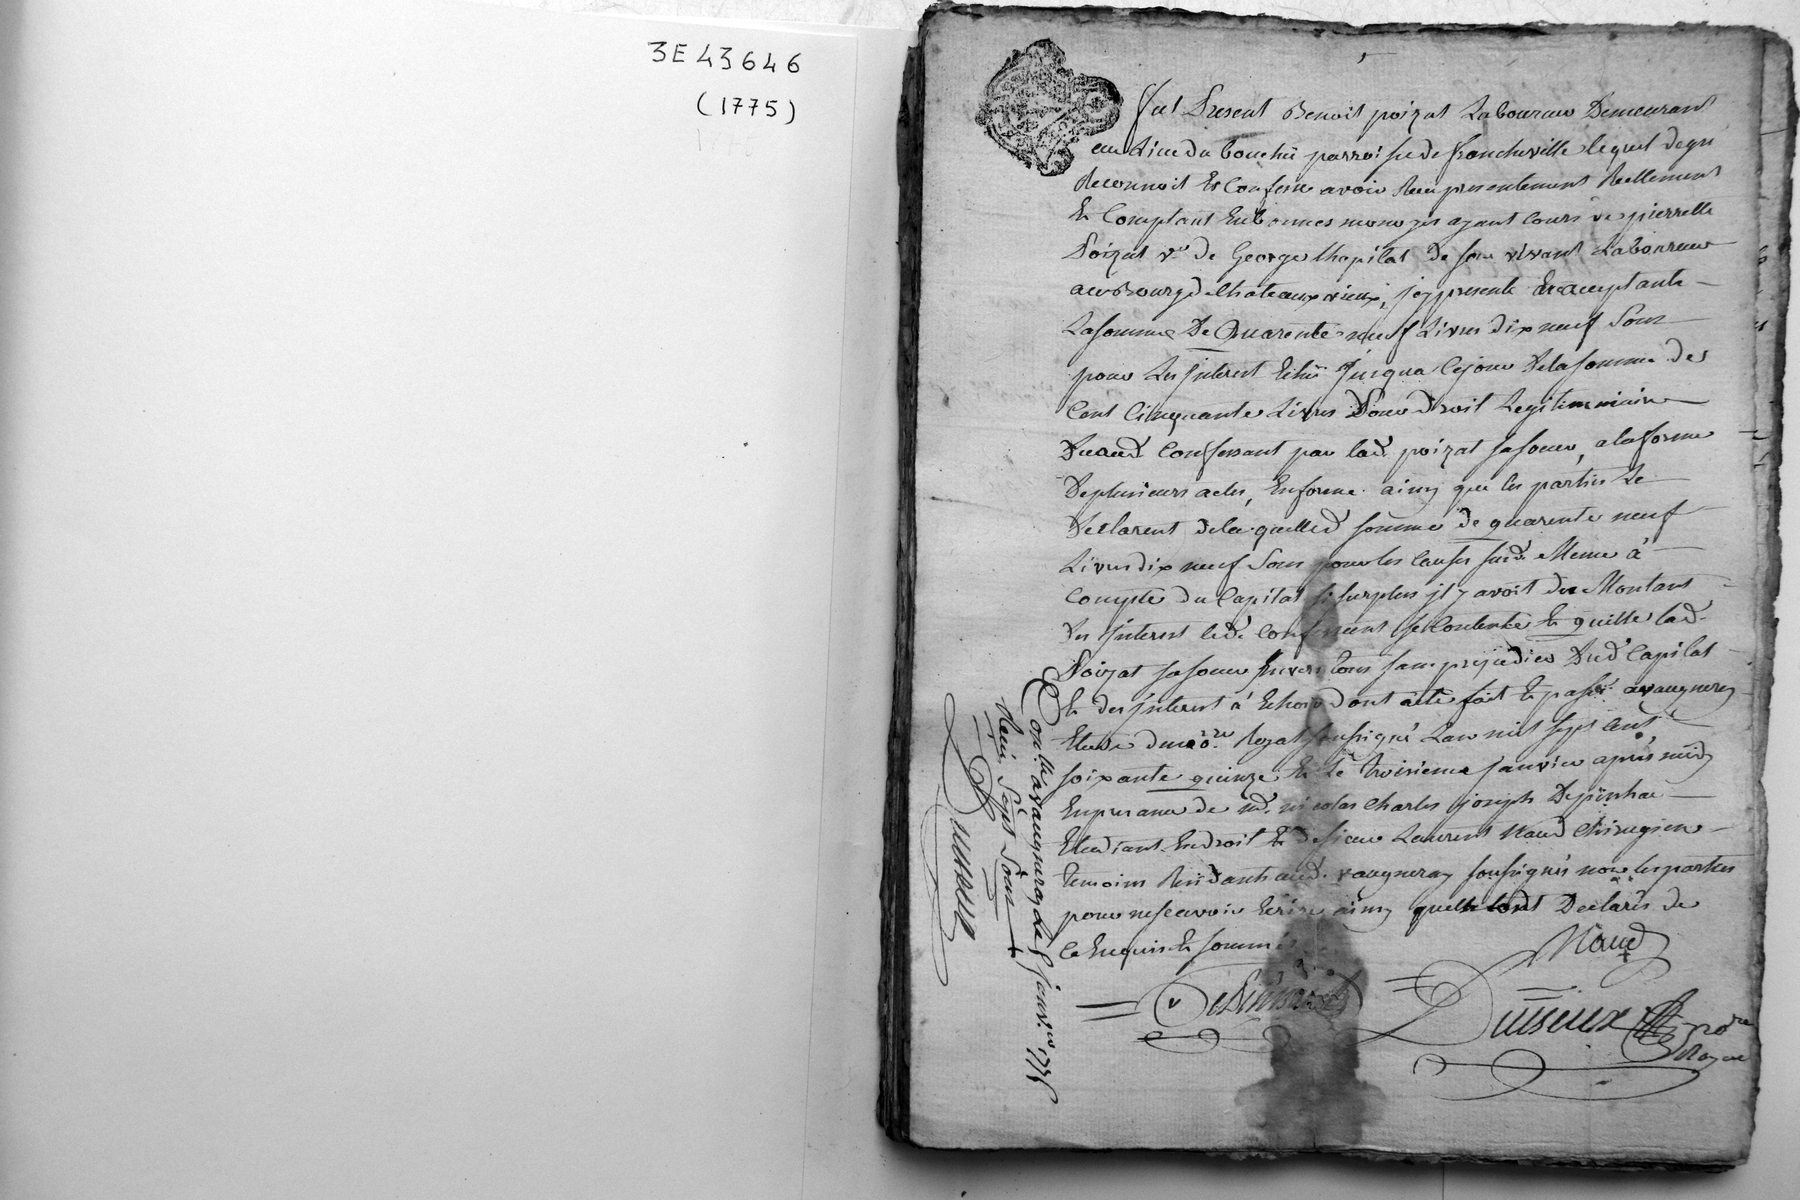 3E 43646
(1775)
fut Present Benoit poizat Laboureur Demeurant
au Lieu du parroisse de francheville lequel de gré
Reconnoit Et Confesse avoir Reçu presentement Reellement
Et Comptant En bonnes monoyes ayant Cours de pierrette
Poizat v.e de George Chapitat de son vivant Laboureur
au Bourg de Chateauxvieux, jcy presente Et acceptante
La somme De Quarente neuf Livres dix neuf Sous
pour Les jnterest Echû jusqua Ce jour De la somme de
Cent Cinquante Livres Pour droit Legitimaire
Du aud. Confessant par lad. poizat sa soeur, a la forme
De plusieurs actes, En forme ainsy que les parties Le
Declarent de la quelle d. somme de quarente neuf
Livres dix neuf Sous pour les Causes susd. Meme à
Compte du Capital si surplus jl y avoit du Montant
des jnterest led. Confessant se Contente Et quitte lad.
Poizat sa soeur Envers tous sans prejudice Dud. Capital
Et des jnterest à Echoir dont acte fait Et passé a vaugneray
Etude du no.re Royal soussigné L'an mil sept Cent
soixante quinze Et Le troisieme janvier après midy
En presence de m.e nicolas Charles joseph Depinhac
Etudiant En droit Et de sieur Laurent Naud Chirugien
temoins Residants aud. vaugneray soussignés non les parties
pour ne scavoir Ecrire ainsy quelle lont Declarés de
Ce Enquis Et sommé
Naud
no.re
Royal
Con.lle a vaugneray Le janv.er 1775
Reçu Sept Sous